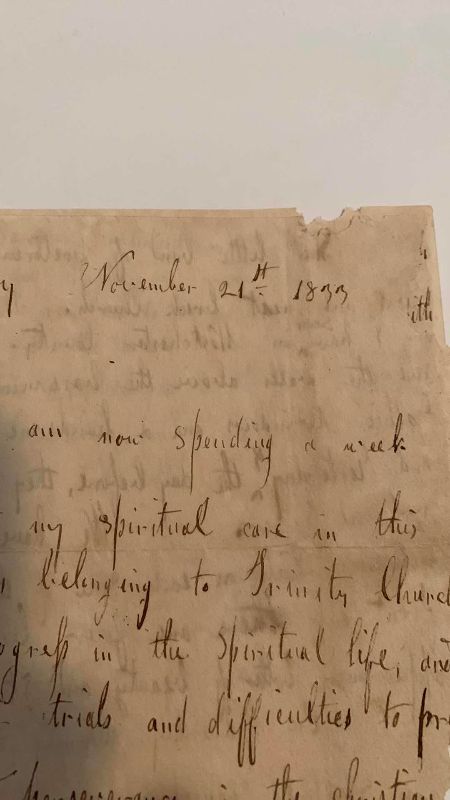 y November 21st 1833
ith
am now spending a week
my spiritual care in this
belonging to Trinity Church
ogress in the spiritual life, and
trials and difficulties to pr
perseverance in the christian